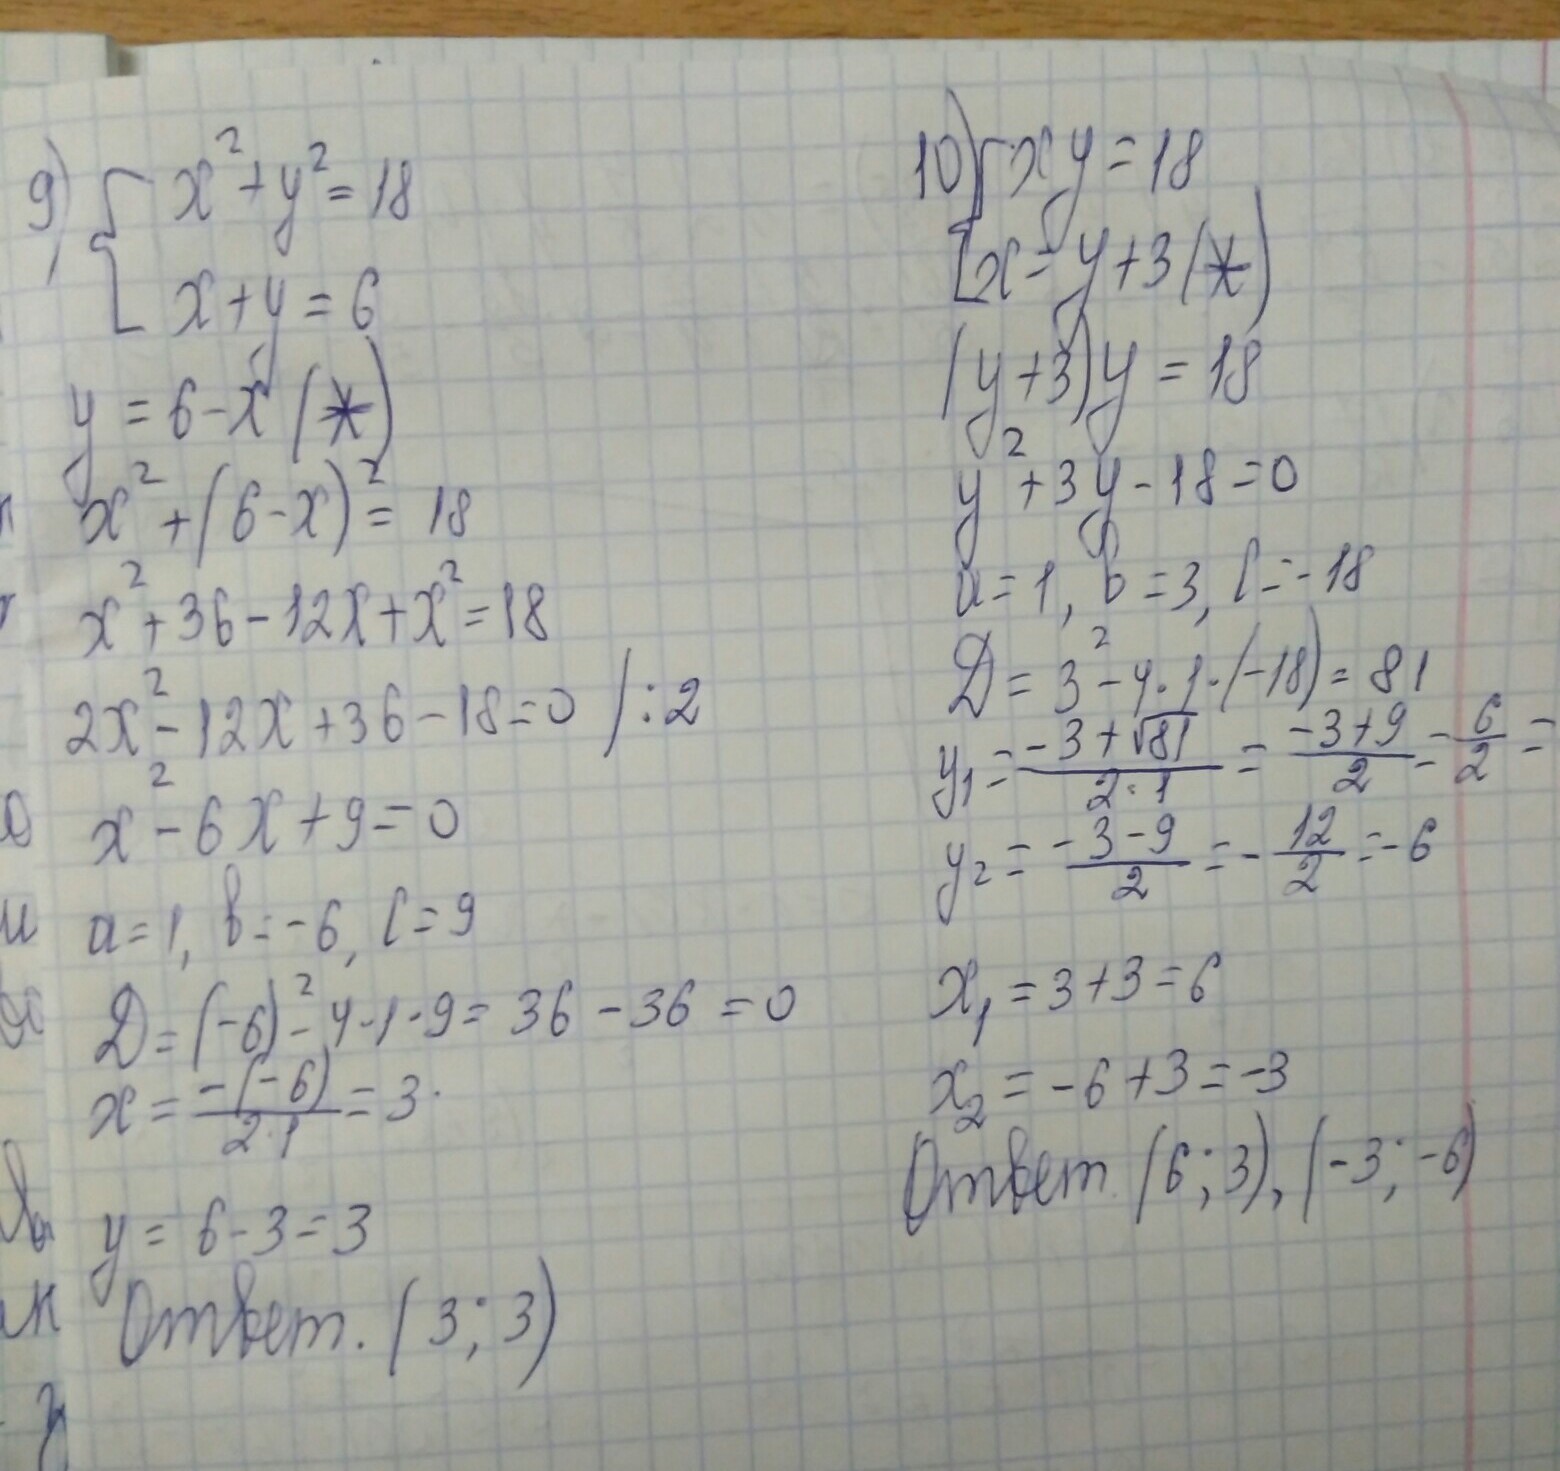 9) { x² + y² = 18
x + y = 6
y = 6 - x (*)
x² + (6 - x)² = 18
x² + 36 - 12x + x² = 18
2x² - 12x + 36 - 18 = 0 / : 2
x² - 6x + 9 = 0
a = 1, b = -6, c = 9
D = (-6)² - 4 · 1 · 9 = 36 - 36 = 0
x = -(-6) / 2·1 = 3.
y = 6 - 3 = 3
Ответ. (3; 3)
10) { xy = 18
x = y + 3 (*)
(y + 3) y = 18
y² + 3y - 18 = 0
a = 1, b = 3, c = -18
D = 3² - 4 · 1 · (-18) = 81
y₁ = -3 + √81 / 2·1 = -3 + 9 / 2 = 6/2 =
y₂ = -3 - 9 / 2 = - 12/2 = -6
x₁ = 3 + 3 = 6
x₂ = -6 + 3 = -3
Ответ. (6; 3), (-3; -6)